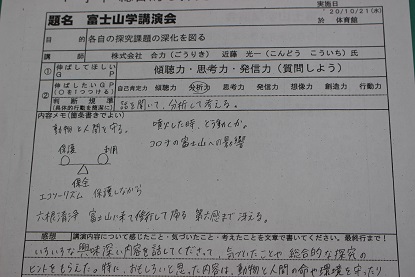 実施日
20/10/21(水)
題名 富士山学講演会 於 体育館
目的 各自の探究課題の深化を図る
講師 株式会社 合力(ごうりき) 近藤 光一(こんどう こういち)氏
① 伸ばしてほしいGP 傾聴力・思考力・発信力(質問しよう)
② 伸ばしたいGP(○を1つつける) 自己肯定力 傾聴力 分析力 思考力 発信力 想像力 創造力 行動力
判断規準(具体的行動を簡潔に) 話を聞いて、分析して考える。
内容メモ(箇条書きでよい)
動物と人間を守る。 噴火した時、どう動くか。
保護 利用 コロナの富士山への影響
保全
エコツーリズム 保護しながら
六根清浄 富士山に来て修行して降る 第六感まで冴える。
感想 講演内容について感じたこと・気づいたこと・考えたことを文章で書いてください。最終行まで!
いろいろな興味深い内容を話してくださって、気づいたことや総合的な探究の
ヒントをもらえた。特に、おもしろいと思った内容は、動物と人間の命や環境を守ったり